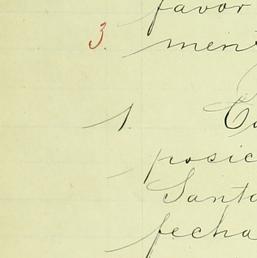 favor
3. men
1. Ca
posic
Santa
fecha